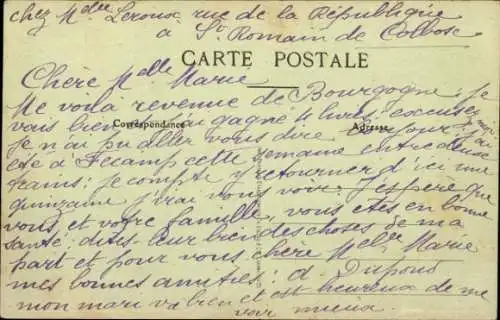 chez Mde Leroux rue de la République
a St Romain de Colbosc
CARTE POSTALE
Chère Melle Marie
Me voila revenue de Bourgogne, je
vais bien j'ai gagné livres excusez
Correspondance
Adresse
je n'ai pu aller vous dire bonjour j'ai
été a Fécamp cette semaine entre deux
trains: je compte y retourner d'ici une
quinzaine j'irai vous voir. J'espère que
vous et votre famille, vous êtes en bonne
santé: dites-leur bien des choses de ma
part et pour vous chère Melle Marie
mes bonnes amitiés: a. Dupond
mon mari va bien et est heureux de me
voir mieux.